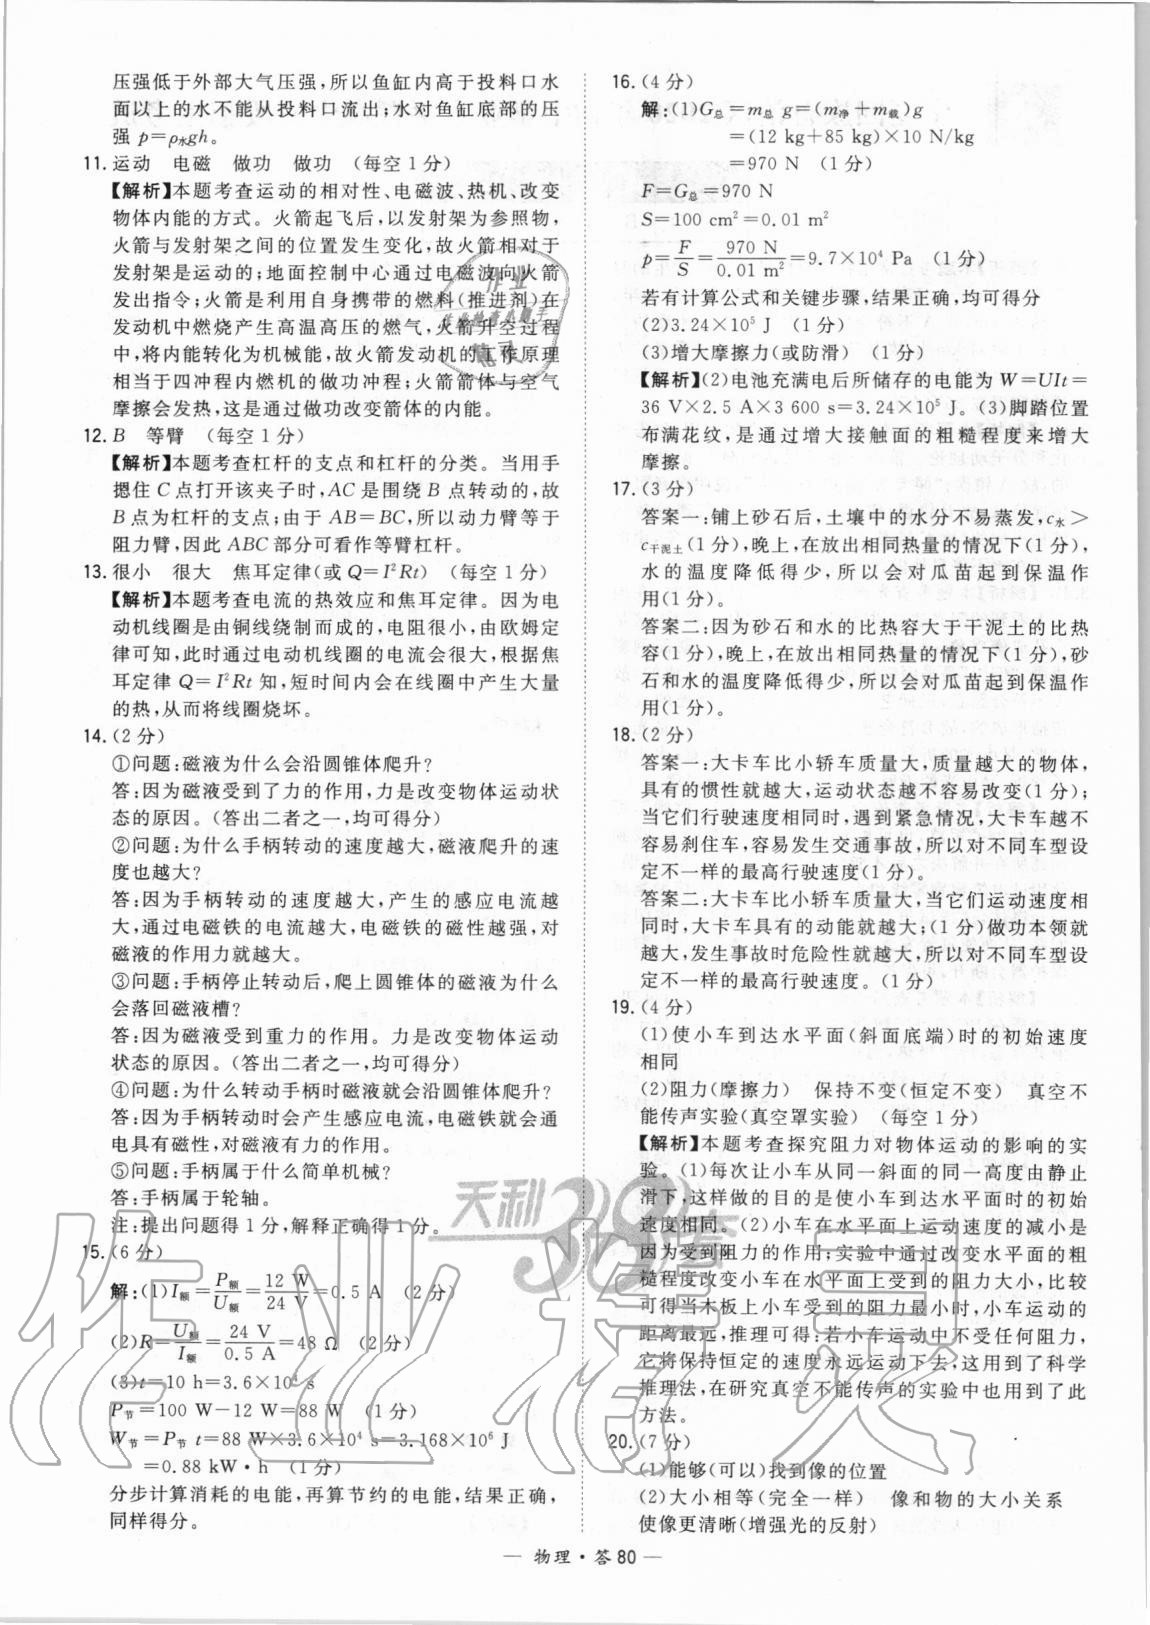 压强低于外部大气压强,所以鱼缸内高于投料口水
面以上的水不能从投料口流出;水对鱼缸底部的压
强 p=ρ水gh。
11.运动 电磁 做功 做功 (每空1分)
【解析】本题考查运动的相对性、电磁波、热机、改变
物体内能的方式。火箭起飞后,以发射架为参照物,
火箭与发射架之间的位置发生变化,故火箭相对于
发射架是运动的;地面控制中心通过电磁波向火箭
发出指令;火箭是利用自身携带的燃料(推进剂)在
发动机中燃烧产生高温高压的燃气,火箭升空过程
中,将内能转化为机械能,故火箭发动机的工作原理
相当于四冲程内燃机的做功冲程;火箭箭体与空气
摩擦会发热,这是通过做功改变箭体的内能。
12.B 等臂 (每空1分)
【解析】本题考查杠杆的支点和杠杆的分类。当用手
摁住C点打开该夹子时,AC是围绕B点转动的,故
B点为杠杆的支点;由于AB=BC,所以动力臂等于
阻力臂,因此ABC部分可看作等臂杠杆。
13.很小 很大 焦耳定律(或Q=I²Rt) (每空1分)
【解析】本题考查电流的热效应和焦耳定律。因为电
动机线圈是由铜线绕制而成的,电阻很小,由欧姆定
律可知,此时通过电动机线圈的电流会很大,根据焦
耳定律Q=I²Rt知,短时间内会在线圈中产生大量
的热,从而将线圈烧坏。
14.(2分)
①问题:磁液为什么会沿圆锥体爬升?
答:因为磁液受到了力的作用,力是改变物体运动状
态的原因。(答出二者之一,均可得分)
②问题:为什么手柄转动的速度越大,磁液爬升的速
度也越大?
答:因为手柄转动的速度越大,产生的感应电流越
大,通过电磁铁的电流越大,电磁铁的磁性越强,对
磁液的作用力就越大。
③问题:手柄停止转动后,爬上圆锥体的磁液为什么
会落回磁液槽?
答:因为磁液受到重力的作用。力是改变物体运动
状态的原因。(答出二者之一,均可得分)
④问题:为什么转动手柄时磁液就会沿圆锥体爬升?
答:因为手柄转动时会产生感应电流,电磁铁就会因
通电具有磁性,对磁液有力的作用。
⑤问题:手柄属于什么简单机械?
答:手柄属于轮轴。
注:提出问题得1分,解释正确得1分。
15.(6分)
解:(1)I额=P额/U额=12 W/24 V=0.5 A (2分)
(2)R=U额/I额=24 V/0.5 A=48 Ω (2分)
(3)t=10 h=3.6×10⁴ s
P节=100 W-12 W=88 W (1分)
W节=P节 t=88 W×3.6×10⁴ s=3.168×10⁶ J
=0.88 kW·h (1分)
分步计算消耗的电能,再算节约的电能,结果正确,
同样得分。
16.(4分)
解:(1)G总=m总 g=(m净+m载)g
=(12 kg+85 kg)×10 N/kg
=970 N (1分)
F=G总=970 N
S=100 cm²=0.01 m²
p=F/S=970 N/0.01 m²=9.7×10⁴ Pa (1分)
若有计算公式和关键步骤,结果正确,均可得分
(2)3.24×10⁵ J (1分)
(3)增大摩擦力(或防滑) (1分)
【解析】(2)电池充满电后所储存的电能为W=UIt=
36 V×2.5 A×3 600 s=3.24×10⁵ J。(3)脚踏位置
布满花纹,是通过增大接触面的粗糙程度来增大
摩擦。
17.(3分)
答案一:铺上砂石后,土壤中的水分不易蒸发,c水>
c干泥土(1分),晚上,在放出相同热量的情况下(1分),
水的温度降低得少,所以会对瓜苗起到保温作
用(1分)。
答案二:因为砂石和水的比热容大于干泥土的比热
容(1分),晚上,在放出相同热量的情况下(1分),砂
石和水的温度降低得少,所以会对瓜苗起到保温作
用(1分)。
18.(2分)
答案一:大卡车比小轿车质量大,质量越大的物体,
具有的惯性就越大,运动状态越不容易改变(1分);
当它们行驶速度相同时,遇到紧急情况,大卡车越不
容易刹住车,容易发生交通事故,所以对不同车型设
定不一样的最高行驶速度(1分)。
答案二:大卡车比小轿车质量大,当它们运动速度相
同时,大卡车具有的动能就越大;(1分)做功本领就
越大,发生事故时危险性就越大,所以对不同车型设
定不一样的最高行驶速度。(1分)
19.(4分)
(1)使小车到达水平面(斜面底端)时的初始速度
相同
(2)阻力(摩擦力) 保持不变(恒定不变) 真空不
能传声实验(真空罩实验) (每空1分)
【解析】本题考查探究阻力对物体运动的影响的实
验。(1)每次让小车从同一斜面的同一高度由静止
滑下,这样做的目的是使小车到达水平面时的初始
速度相同。(2)小车在水平面上运动速度的减小是
因为受到阻力的作用;实验中通过改变水平面的粗
糙程度改变小车在水平面上受到的阻力大小,比较
可得当木板上小车受到的阻力最小时,小车运动的
距离最远,推理可得:若小车运动中不受任何阻力,
它将保持恒定的速度永远运动下去,这用到了科学
推理法,在研究真空不能传声的实验中也用到了此
方法。
20.(7分)
(1)能够(可以)找到像的位置
(2)大小相等(完全一样) 像和物的大小关系
使像更清晰(增强光的反射)
— 物理·答80 —
天利38套
作业精灵